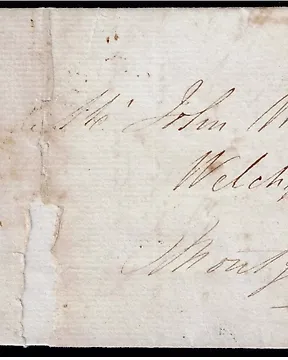 Mr John W
Welchp
Montg